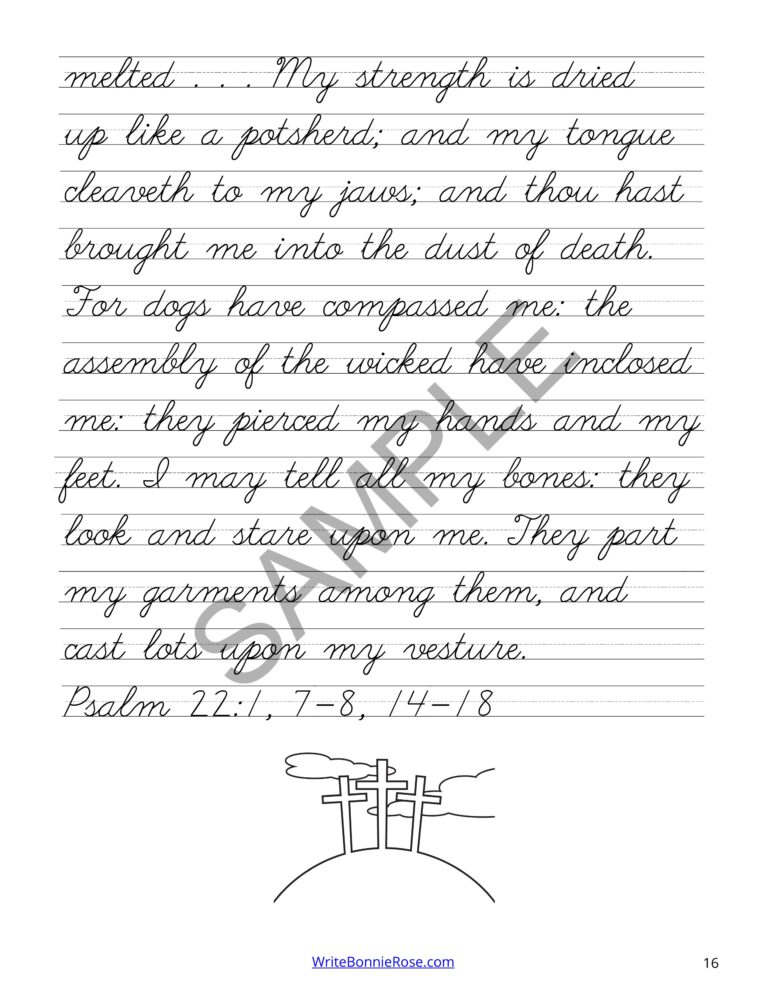 melted . . . My strength is dried
up like a potsherd; and my tongue
cleaveth to my jaws; and thou hast
brought me into the dust of death.
For dogs have compassed me: the
assembly of the wicked have inclosed
me: they pierced my hands and my
feet. I may tell all my bones: they
look and stare upon me. They part
my garments among them, and
cast lots upon my vesture.
Psalm 22:1, 7-8, 14-18
SAMPLE
WriteBonnieRose.com
16